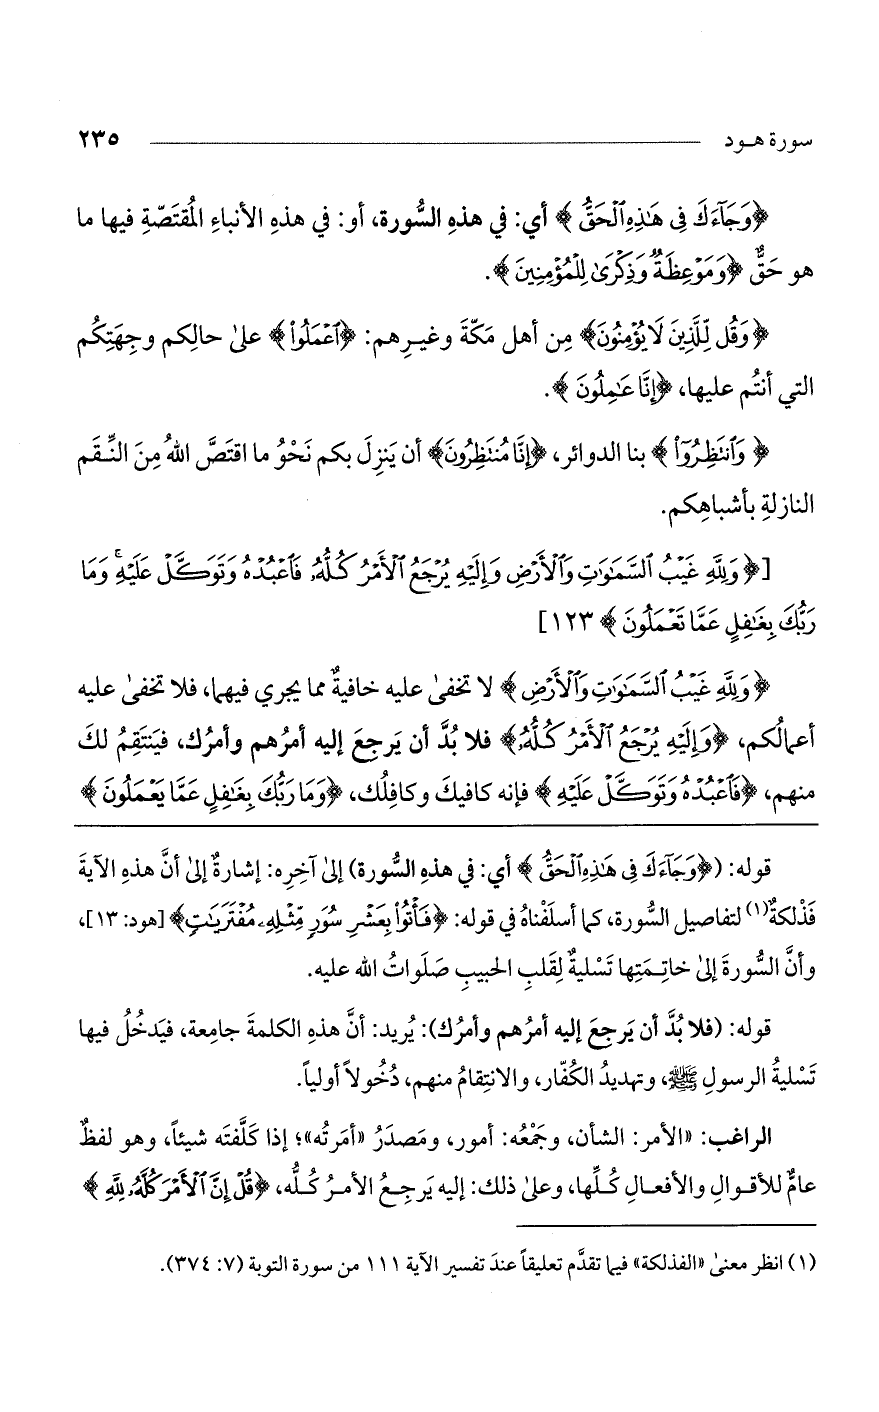 سورة هـود ٢٣٥
﴿وَجَآءَكَ فِى هَٰذِهِ ٱلْحَقُّ﴾ أي: في هذهِ السُّورة، أو: في هذهِ الأنباءِ المُقتَصّةِ فيها ما
هو حَقٌّ ﴿وَمَوْعِظَةٌ وَذِكْرَىٰ لِلْمُؤْمِنِينَ﴾.
﴿وَقُل لِّلَّذِينَ لَا يُؤْمِنُونَ﴾ مِن أهل مَكّةَ وغيـرِهم: ﴿ٱعْمَلُوا۟﴾ علىٰ حالِكم وجِهَتِكُم
التي أنتُم عليها، ﴿إِنَّا عَٰمِلُونَ﴾.
﴿وَٱنتَظِرُوٓا۟﴾ بنا الدوائر، ﴿إِنَّا مُنتَظِرُونَ﴾ أن يَنزِلَ بكم نَحْوُ ما اقتَصَّ اللهُ مِنَ النِّـقَم
النازلةِ بأشباهِكم.
[﴿وَلِلَّهِ غَيْبُ ٱلسَّمَٰوَٰتِ وَٱلْأَرْضِ وَإِلَيْهِ يُرْجَعُ ٱلْأَمْرُ كُلُّهُۥ فَٱعْبُدْهُ وَتَوَكَّلْ عَلَيْهِ ۚ وَمَا
رَبُّكَ بِغَٰفِلٍ عَمَّا تَعْمَلُونَ﴾ ١٢٣]
﴿وَلِلَّهِ غَيْبُ ٱلسَّمَٰوَٰتِ وَٱلْأَرْضِ﴾ لا تخفىٰ عليه خافيةٌ مما يجري فيهما، فلا تخفىٰ عليه
أعمالُكم، ﴿وَإِلَيْهِ يُرْجَعُ ٱلْأَمْرُ كُلُّهُۥ﴾ فلا بُدَّ أن يَرجِعَ إليه أمرُهم وأمرُك، فيَنتَقِمُ لكَ
منهم، ﴿فَٱعْبُدْهُ وَتَوَكَّلْ عَلَيْهِ﴾ فإنه كافيكَ وكافِلُك، ﴿وَمَا رَبُّكَ بِغَٰفِلٍ عَمَّا يَعْمَلُونَ﴾
قوله: (﴿وَجَآءَكَ فِى هَٰذِهِ ٱلْحَقُّ﴾ أي: في هذهِ السُّورة) إلىٰ آخِرِه: إشارةٌ إلىٰ أنَّ هذهِ الآيةَ
فَذْلكةٌ(١) لتفاصيل السُّورة، كما أسلَفْناهُ في قوله: ﴿فَأْتُوا۟ بِعَشْرِ سُوَرٍ مِّثْلِهِۦ مُفْتَرَيَٰتٍ﴾ [هود: ١٣]،
وأنَّ السُّورةَ إلىٰ خاتِـمَتِها تَسْليةٌ لِقَلبِ الحبيبِ صَلَواتُ الله عليه.
قوله: (فلا بُدَّ أن يَرجِعَ إليه أمرُهم وأمرُك): يُريد: أنَّ هذهِ الكلمةَ جامِعة، فيَدخُلُ فيها
تَسْليةُ الرسولِ ﷺ، وتهديدُ الكُفّار، والانتِقامُ منهم، دُخُولاً أولياً.
الراغب: «الأمر: الشأن، وجَمْعُه: أمور، ومَصدَرُ «أمَرتُه»؛ إذا كَلَّفتَه شيئاً، وهو لفظٌ
عامٌّ للأقـوالِ والأفعـالِ كُـلِّها، وعلىٰ ذلك: إليه يَرجِـعُ الأمـرُ كُـلُّه، ﴿قُلْ إِنَّ ٱلْأَمْرَ كُلَّهُۥ لِلَّهِ﴾
(١) انظر معنىٰ «الفذلكة» فيما تقدَّم تعليقاً عندَ تفسير الآية ١١١ من سورة التوبة (٧: ٣٧٤).